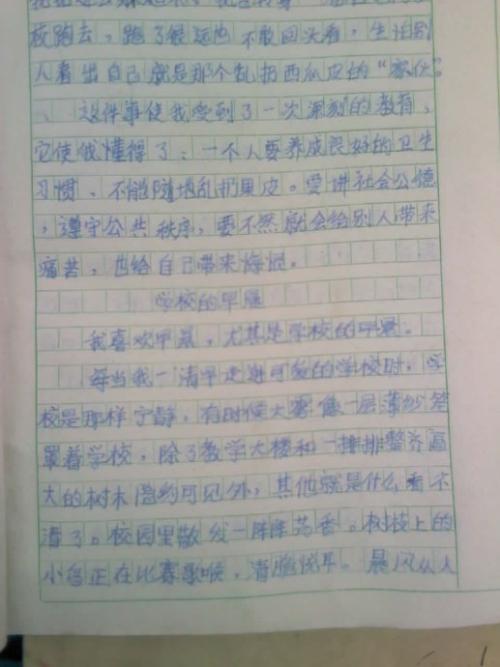 校跑去，跑了很远也不敢回头看，生怕别
人看出自己就是那个乱扔西瓜皮的“家伙”
这件事使我受到了一次深刻的教育，
它使我懂得了：一个人要养成良好的卫生
习惯、不能随地乱扔果皮。要讲社会公德
，遵守公共秩序，要不然就会给别人带来
痛苦，也给自己带来悔恨。
学校的早晨
我喜欢早晨，尤其是学校的早晨。
每当我一清早走进可爱的学校时，学
校是那样宁静，有时候大雾像一层薄纱笼
罩着学校，除了教学大楼和一排排整齐高
大的树木隐约可见外，其他就是什么看不
清了。校园里散发一阵阵芳香。树枝上的
小鸟正在比赛歌喉，清脆悦耳。晨风从人